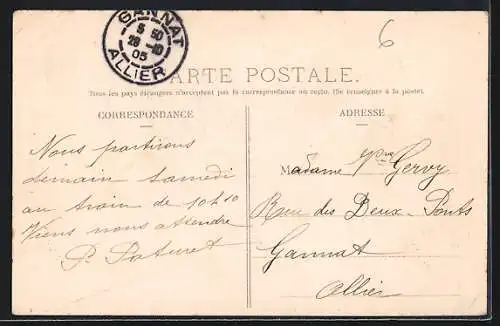 GANNAT
5 50
28 -10
05
ALLIER
6
CARTE POSTALE.
Tous les pays étrangers n'acceptent pas la correspondance au recto. (Se renseigner à la poste).
CORRESPONDANCE
ADRESSE
Nous partirons
demain samedi
au train de 10h10
Viens nous attendre
P. Paturet
Madame Vve Gervy
Rue des Deux-Ponts
Gannat
Allier